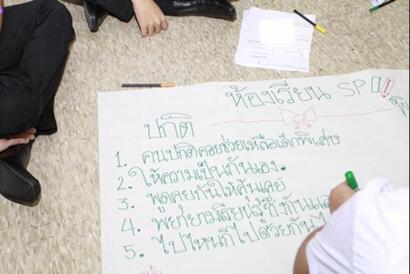 ห้องเรียน SP
ปกติ
1. คนปกติคอยช่วยเหลือเด็กพิเศษ
2. ให้ความเป็นกันเอง.
3. พูดคุยกันให้คุ้นเคย
4. พยายามเรียนรู้ซึ่งกันและ
5. ไปไหนก็ไปด้วยกัน